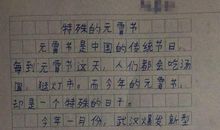 特殊的元宵节
元宵节是中国的传统节日。
每到元宵节这天，人们都会吃汤
圆、逛灯市。而今年的元宵节，
却是一个特殊的日子。
今年一月份，武汉爆发新型